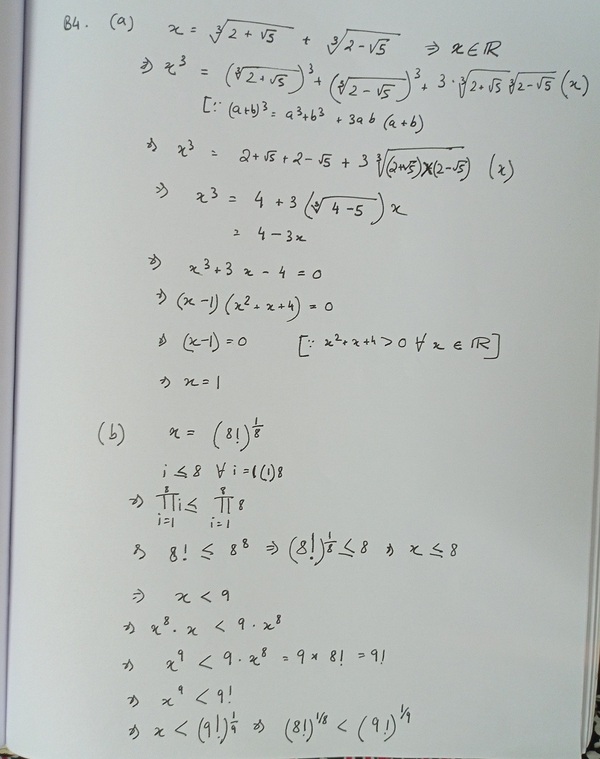 B4. (a) x = ∛(2 + √5) + ∛(2 - √5) ⇒ x ∈ ℝ
⇒ x³ = (∛(2 + √5))³ + (∛(2 - √5))³ + 3 · ∛(2 + √5) ∛(2 - √5) (x)
[∵ (a+b)³ = a³ + b³ + 3ab (a+b)
⇒ x³ = 2 + √5 + 2 - √5 + 3 ∛((2+√5)×(2-√5)) (x)
⇒ x³ = 4 + 3 (∛(4 - 5)) x
= 4 - 3x
⇒ x³ + 3x - 4 = 0
⇒ (x - 1) (x² + x + 4) = 0
⇒ (x - 1) = 0 [∵ x² + x + 4 > 0 ∀ x ∈ ℝ]
⇒ x = 1
(b) x = (8!)^(1/8)
i ≤ 8 ∀ i = 1(1)8
⇒ ∏_{i=1}^{8} i ≤ ∏_{i=1}^{8} 8
⇒ 8! ≤ 8⁸ ⇒ (8!)^(1/8) ≤ 8 ⇒ x ≤ 8
⇒ x < 9
⇒ x⁸ · x < 9 · x⁸
⇒ x⁹ < 9 · x⁸ = 9 × 8! = 9!
⇒ x⁹ < 9!
⇒ x < (9!)^(1/9) ⇒ (8!)^(1/8) < (9!)^(1/9)